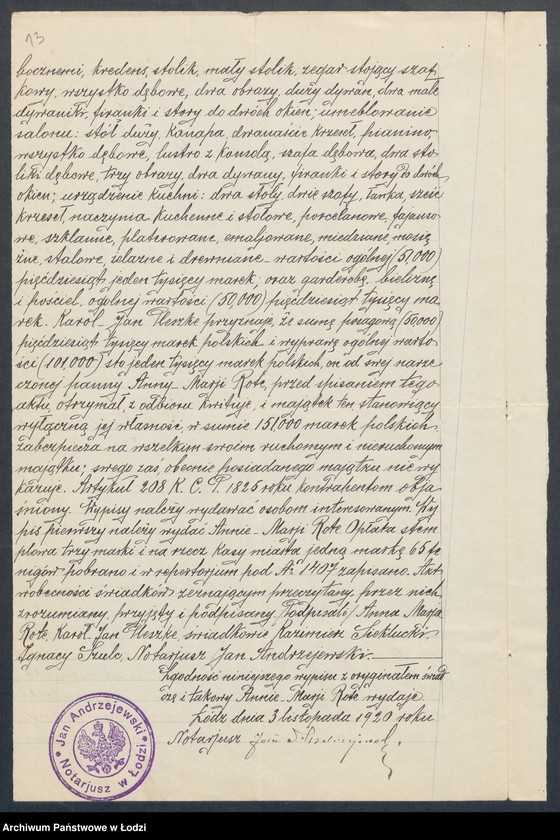 13
bocznemi, kredens, stolik, mały stolik, zegar stojący szaf-
kowy, wszystko dębowe, dwa obrazy, duży dywan, dwa małe
dywaniki, firanki i story do dwóch okien; umeblowanie
salonu: stół duży, kanapa, dwanaście krzeseł, pianino,
wszystko dębowe, lustro z konsolą, szafa dębowa, dwa sto-
liki dębowe, trzy obrazy, dwa dywany, firanki i story do dwóch
okien; urządzenie kuchni: dwa stoły, dwie szafy, ławka, sześć
krzeseł, naczynia kuchenne i stołowe, porcelanowe, fajanso-
we, szklanne, platerowane, emaljowane, miedziane, mosię
żne, stalowe, żelazne i drewniane wartości ogólnej (51,000)
pięćdziesiąt jeden tysięcy marek; oraz garderobę, bieliznę
i pościel, ogólnej wartości (50,000) pięćdziesiąt tysięcy ma
rek. Karol-Jan Pleszke przyznaje, że sumę posagową (50,000)
pięćdziesiąt tysięcy marek polskich i wyprawę ogólnej warto-
ści (101,000) sto jeden tysięcy marek polskich, on od swej narze
czonej panny Anny-Marji Rote, przed spisaniem tego
aktu, otrzymał, z odbioru kwituje, i majątek ten, stanowiący
wyłączną jej własność w sumie 151000 marek polskich,
zabezpiecza na wszelkim swoim ruchomym i nieruchomym
majątku; swego zaś obecnie posiadanego majątku nie wy
kazuje. Artykuł 208 K. C. P. 1825 roku kontrahentom obja
śniony. Wypisy należy wydawać osobom interesowanym. Wy
pis pierwszy należy wydać Annie-Marji Rote. Opłata stem
plowa trzy marki i na rzecz kasy miasta jedną markę 65 fe
nigów pobrano i w repertorjum pod № 1407 zapisano. Akt
w obecności świadków zeznającym przeczytany, przez nich
zrozumiany, przyjęty i podpisany. /Podpisali/ Anna Marja
Rote, Karol Jan Pleszke, świadkowie Kazimierz Siekłucki,
Ignacy Szulc, Notarjusz Jan Andrzejewski.
Zgodność niniejszego wypisu z oryginałem świad
czę i takowy Annie-Marji Rote wydaję
Łódź dnia 3 listopada 1920 roku
Notarjusz
Jan Andrzejewski
Notarjusz w Łodzi
Archiwum Państwowe w Łodzi